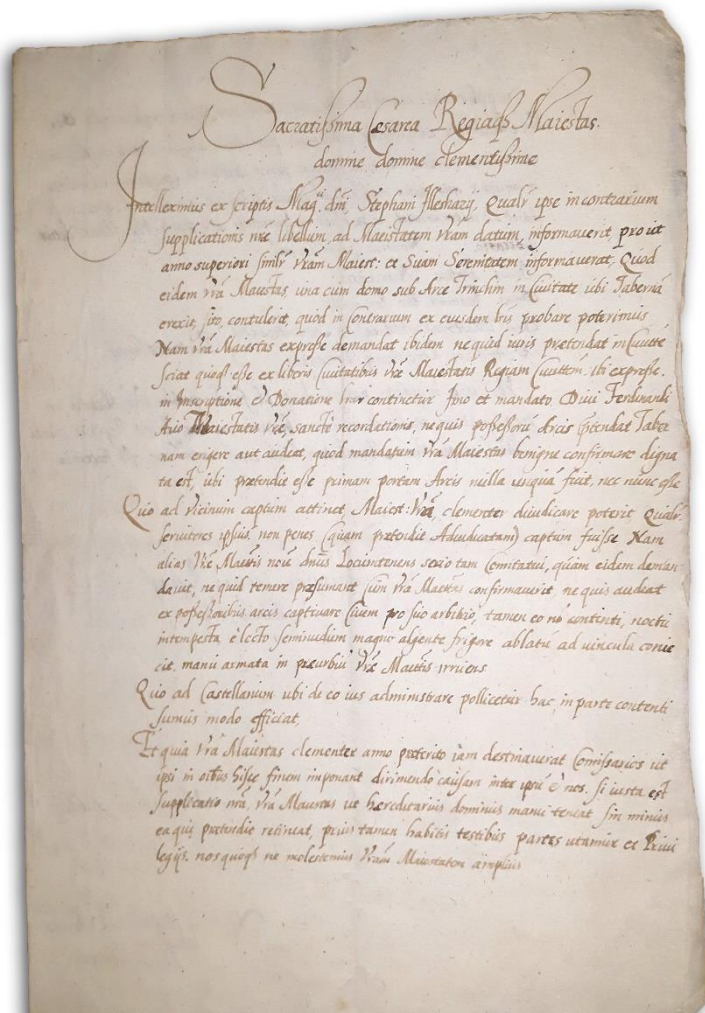 Sacratissima Cesarea Regiaqß Maiestas.
domine domine clementissime
Intelleximus ex scriptis Mag. dni, Stephani Illeshazij, Qualr ipse in contrarium
supplicationis nre libellum, ad Maiestatem Vram datum, informaverit, pro ut
anno superiori similr Vram Maiest: et Suam Serenitatem informaverat, Quod
eidem Vra Maiestas, una cum domo sub Arce Trinchin in Civitate ubi Taberna
erexit, sito, contulerit, quod in Contrarium ex eiusdem lris probare poterimus
Nam Vra Maiestas expresse demandat ibidem ne quid iuris pretendat in Civitte
sciat quoqß esse ex liberis Civitatibus Vre Maiestatis Regiam Civittem. ibi expresse.
in Inscriptione & Donatione continetur Imo et mandato Divi Ferdinandi
Aui Maiestatis Vre, sancte recordationis, ne quis possessorũ Arcis Taber
nam erigere aut audeat, quod mandatum Vra Maiestas benigne confirmare digna
ta est, ubi pretendit esse primam portam Arcis nulla usquã fuit, nec nunc esse
Quo ad vicinum captum attinet, Maiest: Vra, clementer diiudicare poterit Qualr
servitores ipsius, non penes (quam pretendit Adiudicatam) captum fuisse Nam
alias Vre Maiettis noie dnus Locumtenens serio tam Comitatui, quam eidem deman
davit, ne quid temere presumant Cum Vra Maiestas confirmaverit ne quis audeat
ex possessoribus arcis captivare Civem pro suo arbitrio, tamen eo nõ contenti, noctu
intempesta, e lecto seminudum magno algente frigore ablatũ ad vincula conie
cit. manu armata in preurbiũ Vre Maiettis irruens
Quo ad Castellanum ubi de eo ius administrare pollicetur hac, in parte contenti
sumus modo efficiat
Et quia Vra Maiestas clementer anno preterito iam destinaverat Comissarios ut
ipsi in oibus hisce finem imponant dirimendo causam inter ipsũ & nos. si iusta est
supplicatio nra, Vra Maiestas ut hereditarius dominus manu teneat sin minus
ea qui pretendit retineat, prius tamen habitis testibus partes utamur et Privi
legijs. nos quoqß ne molestemus Vram Maiestatem amplius